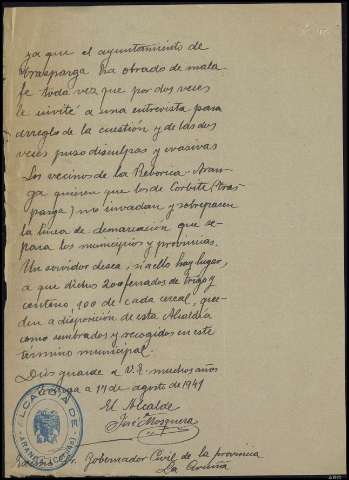 ya que el ayuntamiento de
Trasparga ha obrado de mala
fe toda vez que por dos veces
le invité a una entrevista para
arreglo de la cuestión y de las dos
veces puso disculpas y evasivas
Los vecinos de la Reborica-Aran-
ga quieren que los de Corbite (Tras-
parga) no invadan y sobrepasen
la línea de demarcación que se-
para los municipios y provincias.
Un servidor desea, si a ello hay lugar,
a que dichos 200 ferrados de trigo y
centeno, 100 de cada cereal, que-
den a disposición de esta Alcaldía
como sembrados y recogidos en este
término municipal.
Dios guarde a V.E. muchos años
Aranga a 17 de agosto de 1941
El Alcalde
José Mosquera
ALCALDIA DE
ARANGA (CORUÑA)
Excmo. Sr. Gobernador Civil de la provincia
La Coruña